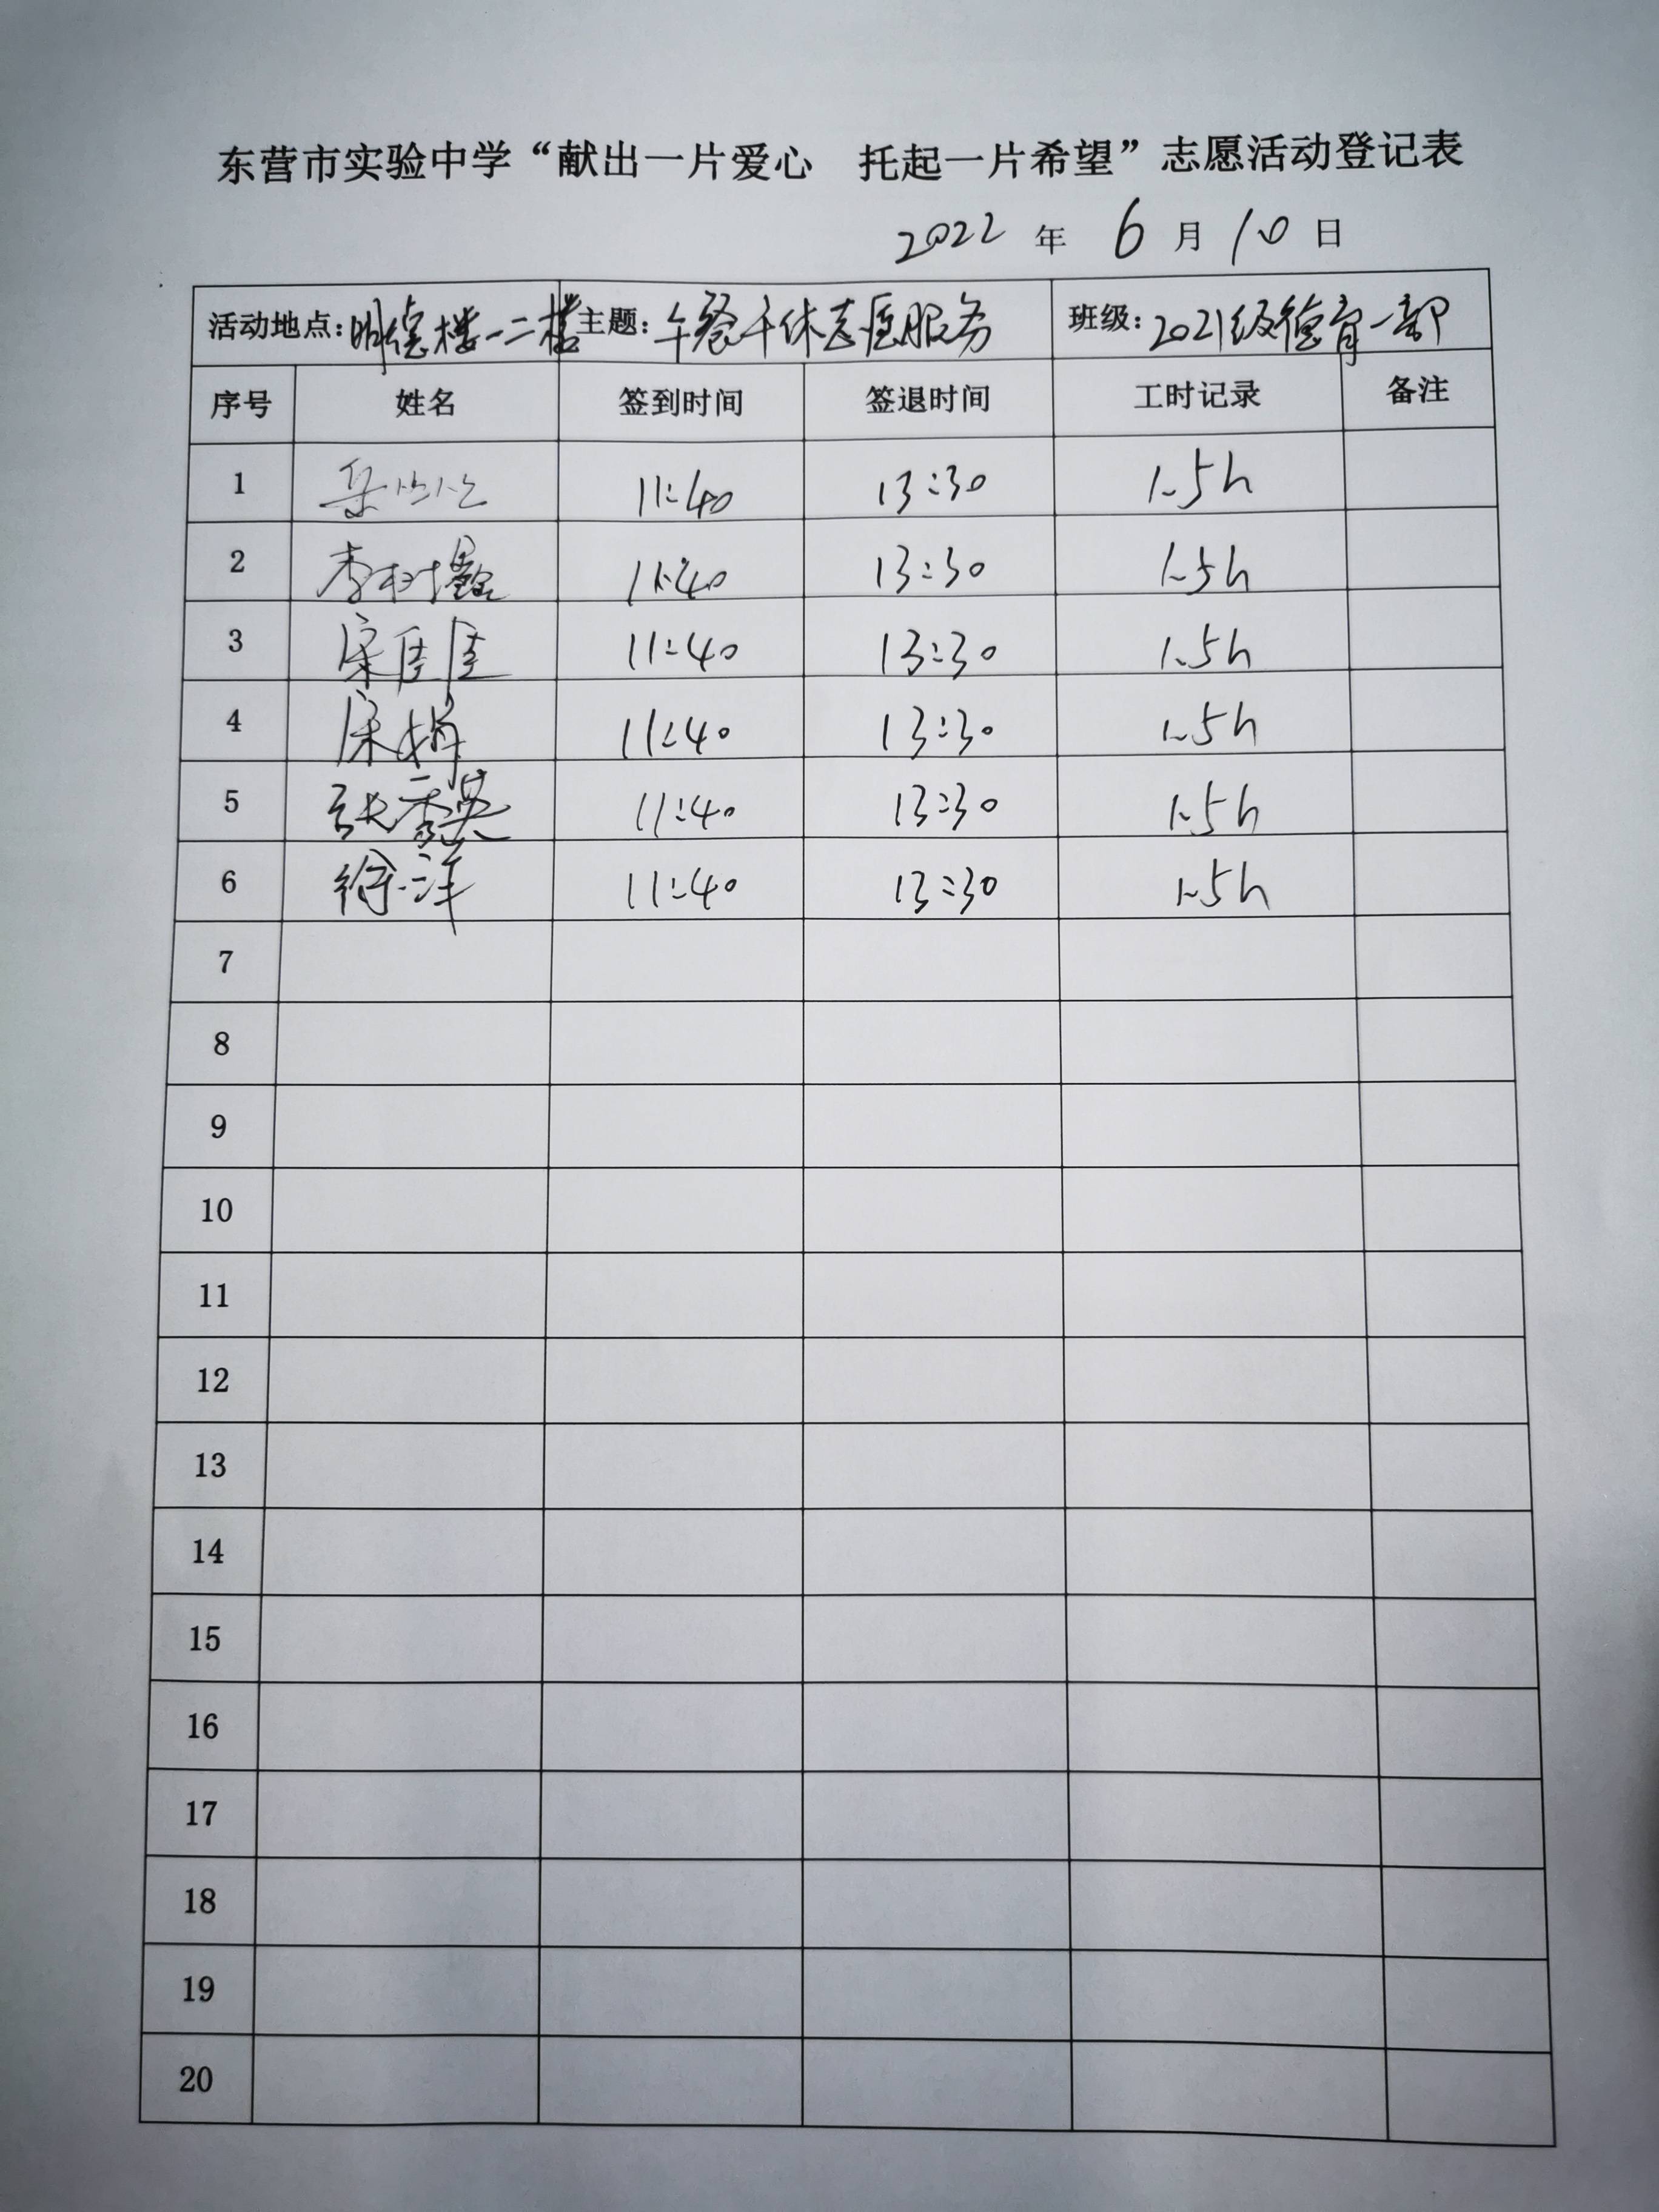 东营市实验中学“献出一片爱心 托起一片希望”志愿活动登记表
2022 年 6 月 10 日
活动地点：明德楼一二楼 主题：午餐午休志愿服务 班级：2021级德育一部
序号 姓名 签到时间 签退时间 工时记录 备注
1 11:40 13:30 1.5h
2 李树 11:40 13:30 1.5h
3 宋佳佳 11:40 13:30 1.5h
4 宋娟 11:40 13:30 1.5h
5 张秀英 11:40 13:30 1.5h
6 徐洋 11:40 13:30 1.5h
7
8
9
10
11
12
13
14
15
16
17
18
19
20